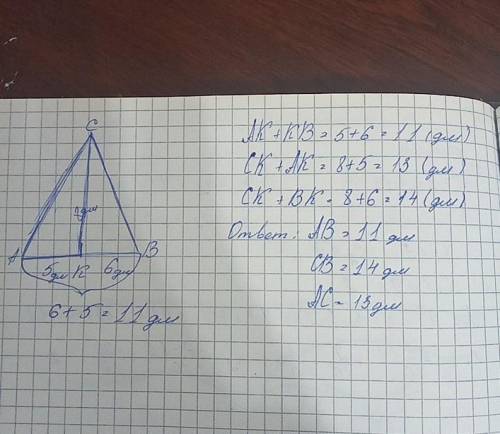 C
8дм
A
B
5дм
K
6дм
6+5=11дм
AK+KB=5+6=11(дм)
CK+AK=8+5=13(дм)
CK+BK=8+6=14(дм)
Ответ: AB=11дм
CB=14дм
AC=13дм